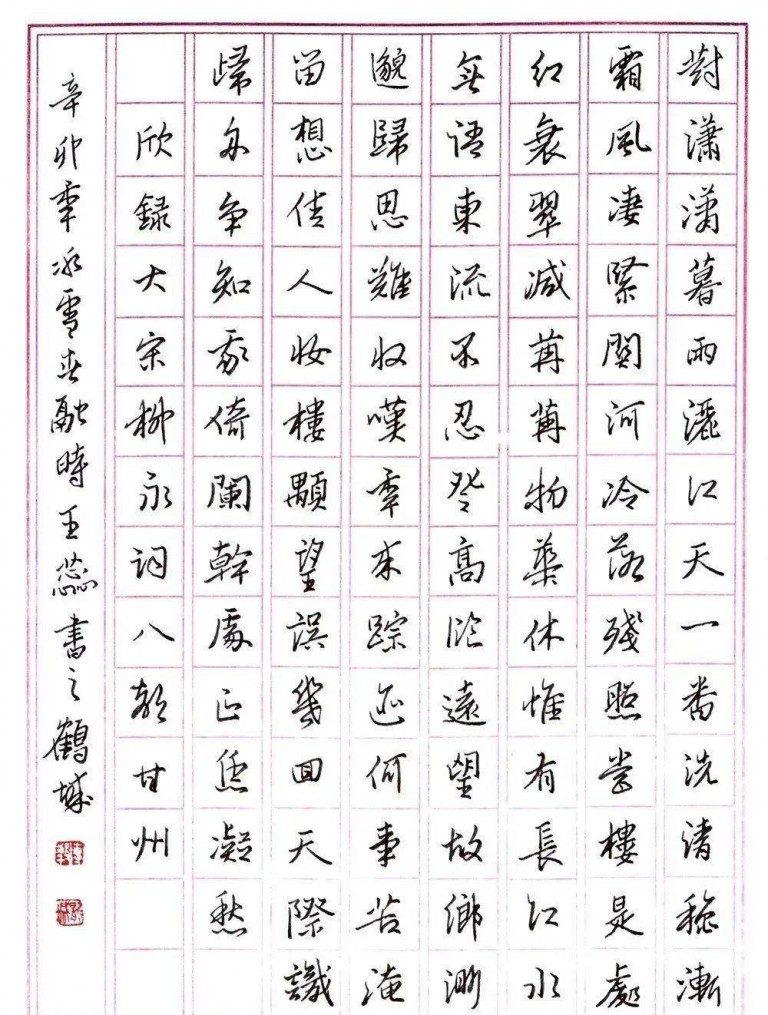 對潇潇暮雨灑江天一番洗清秋漸
霜風凄緊關河冷落殘照當樓是處
紅衰翠減苒苒物華休惟有長江水
無語東流不忍登高臨遠望故鄉渺
邈歸思難收嘆年來踪迹何事苦淹
留想佳人妝樓顒望誤幾回天際識
歸舟争知我倚闌幹處正恁凝愁
欣録大宋柳永詞八聲甘州
辛卯年冰雪春融時王蕊書之鶴城